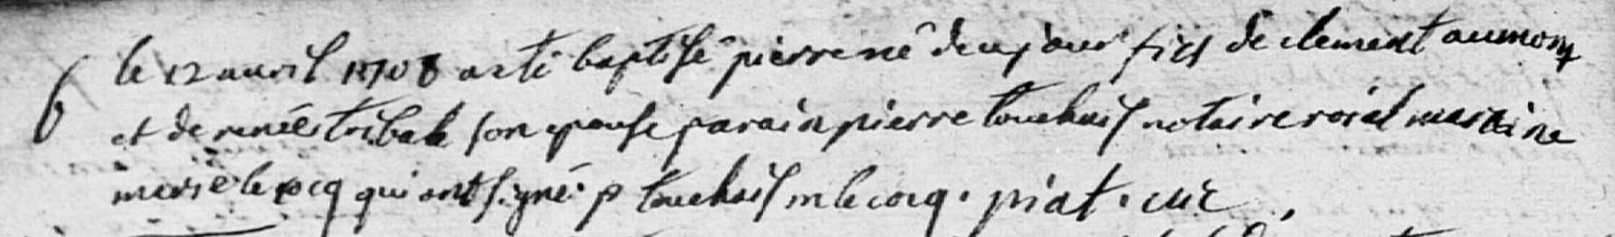 b le 12 auril 1708 a eté baptisé pierre né de ce jour fils de clement aumont
et de renée tribale son epouse parain pierre touchais notaire roial maraine
marie le cocq qui ont signé. p touchais m lecocq. piat. curé